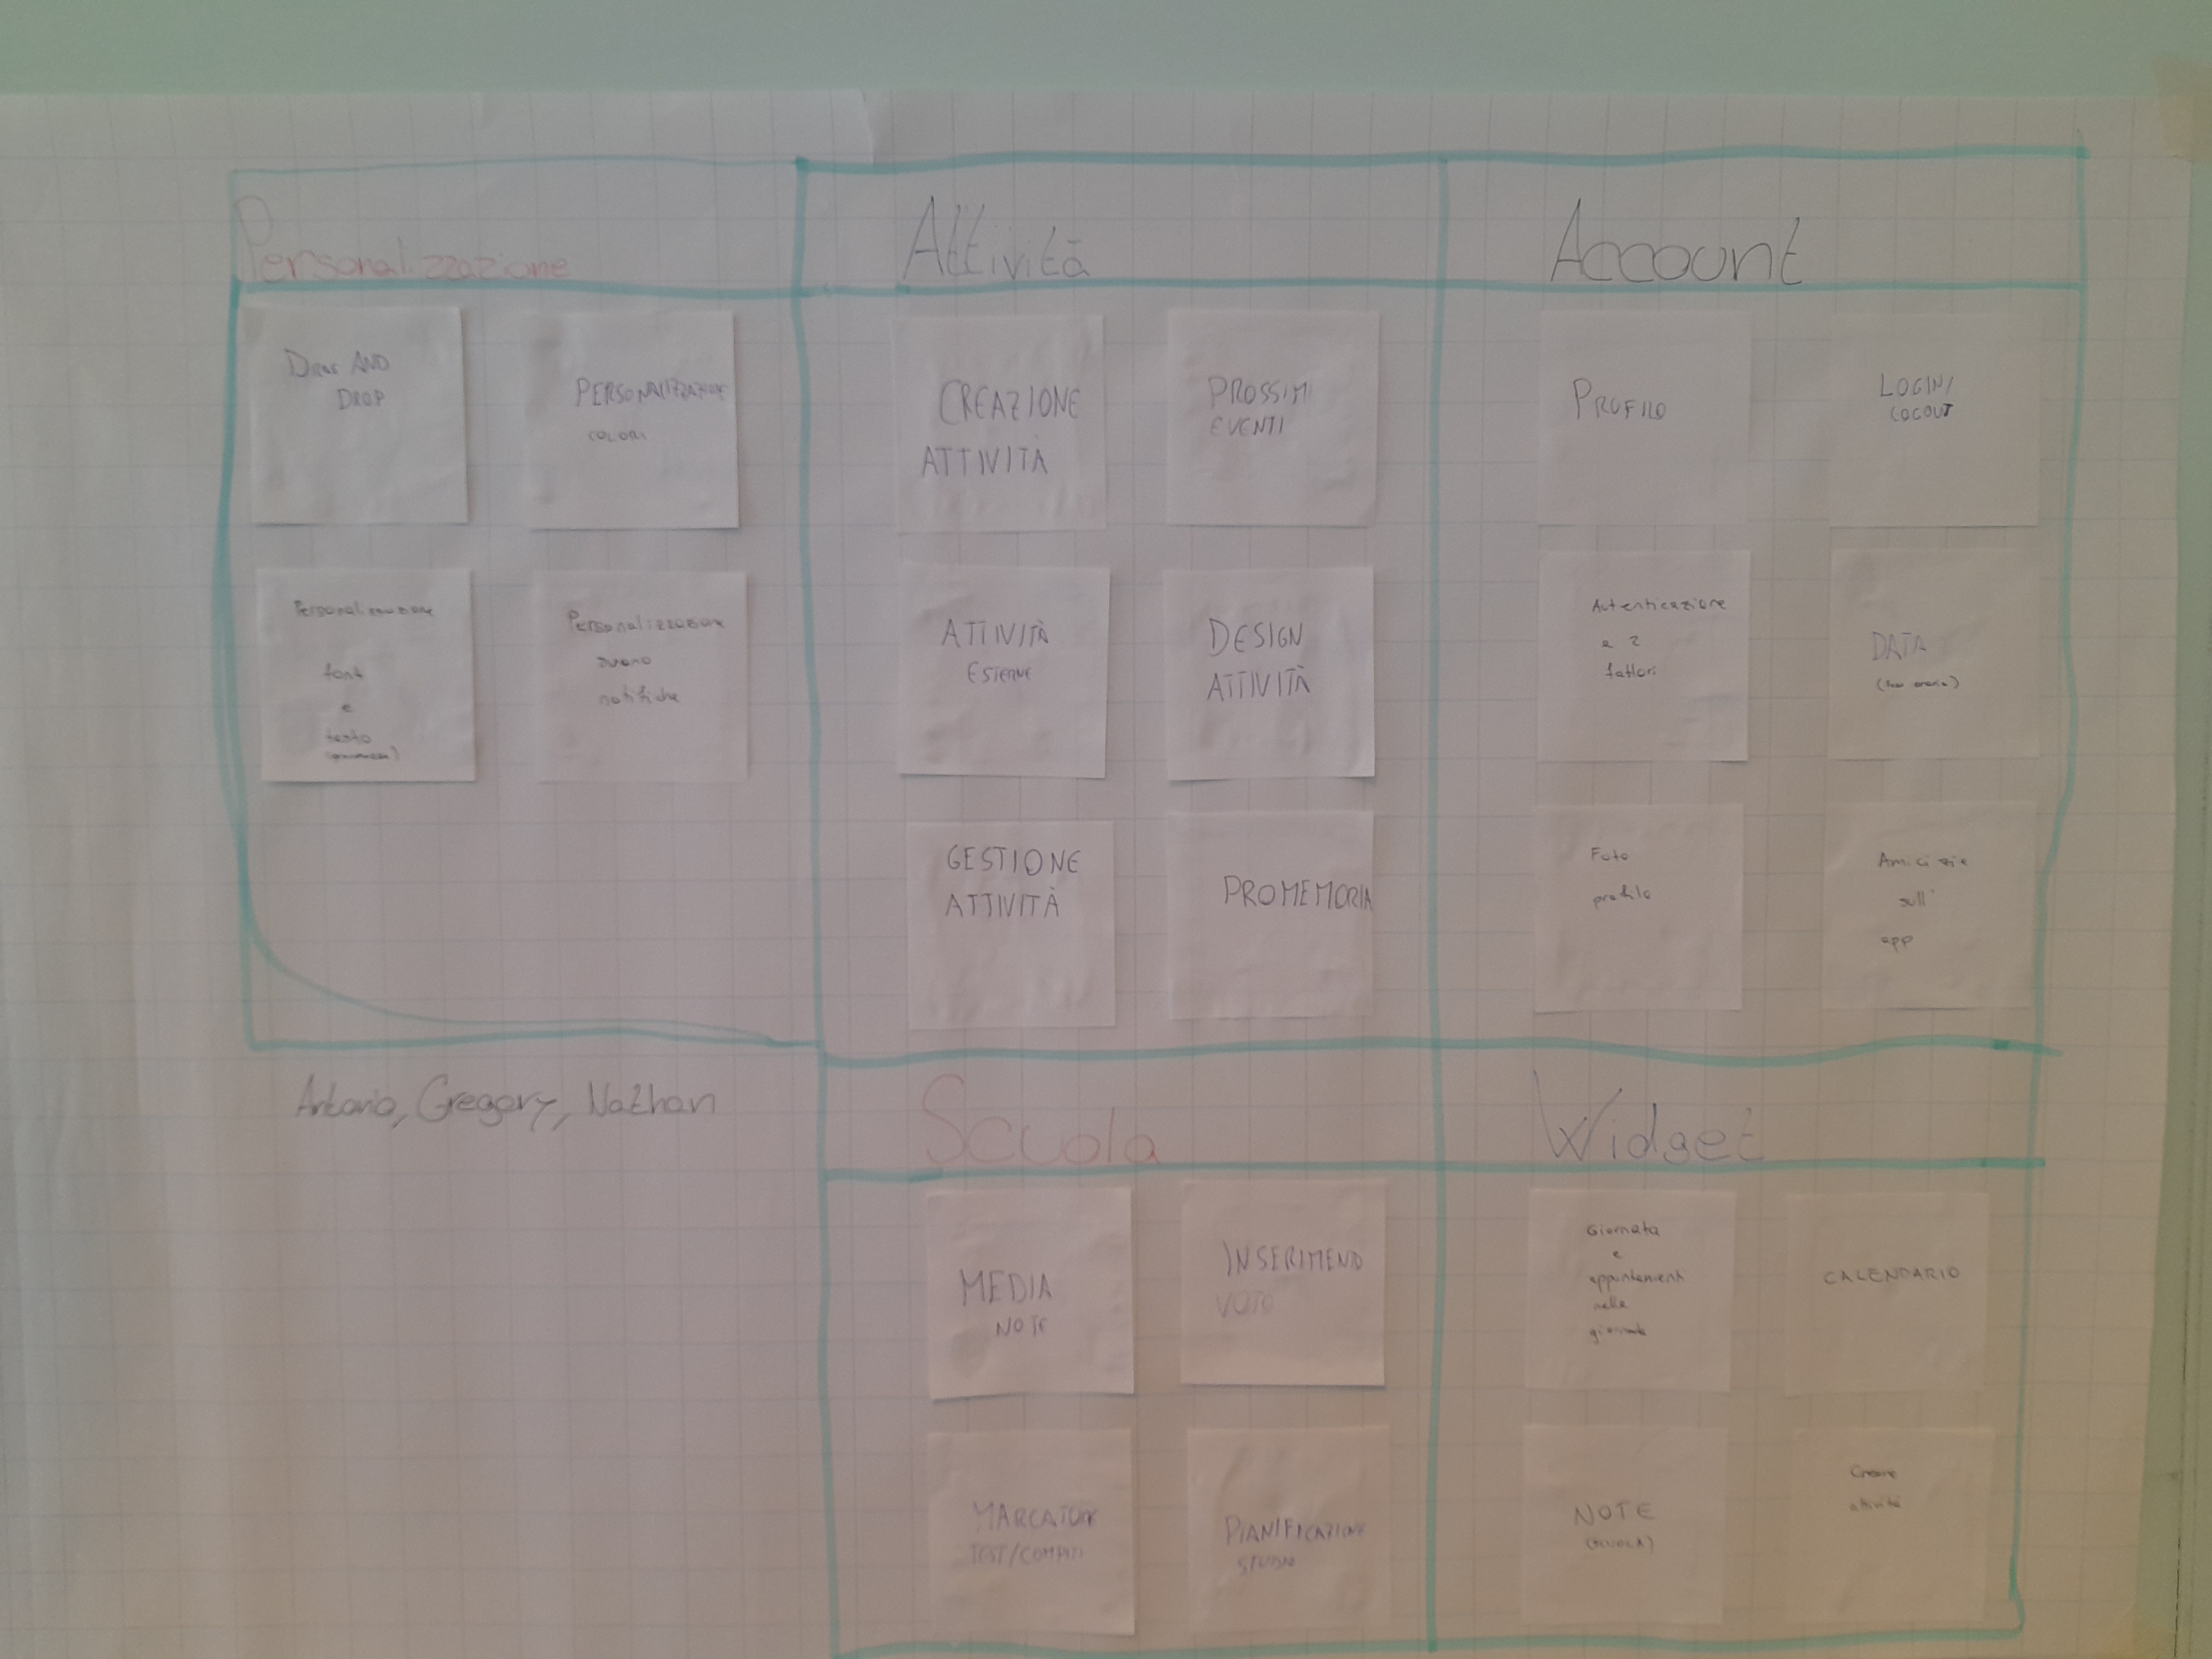 Personalizzazione
DRAG AND
DROP
PERSONALIZZAZIONE
COLORI
Personalizzazione
font
e
testo
Personalizzazione
suono
notifiche
Attività
CREAZIONE
ATTIVITÀ
PROSSIMI
EVENTI
ATIVITÀ
ESTERNE
DESIGN
ATTIVITÀ
GESTIONE
ATTIVITÀ
PROMEMORIA
Account
PROFILO
LOGIN/
LOGOUT
Autenticazione
a 2
fattori
DATA
Foto
profilo
Amicizie
sull'
app
Antonio, Gregory, Nathan
Scuola
MEDIA
NOTE
INSERIMENO
VOTO
MARCATORE
TEST/COMPITI
PIANIFICAZIONE
STUDIO
Widget
Giornata
e
appuntamenti
nella
giornata
CALENDARIO
NOTE
(SCUOLA)
Creare
attività